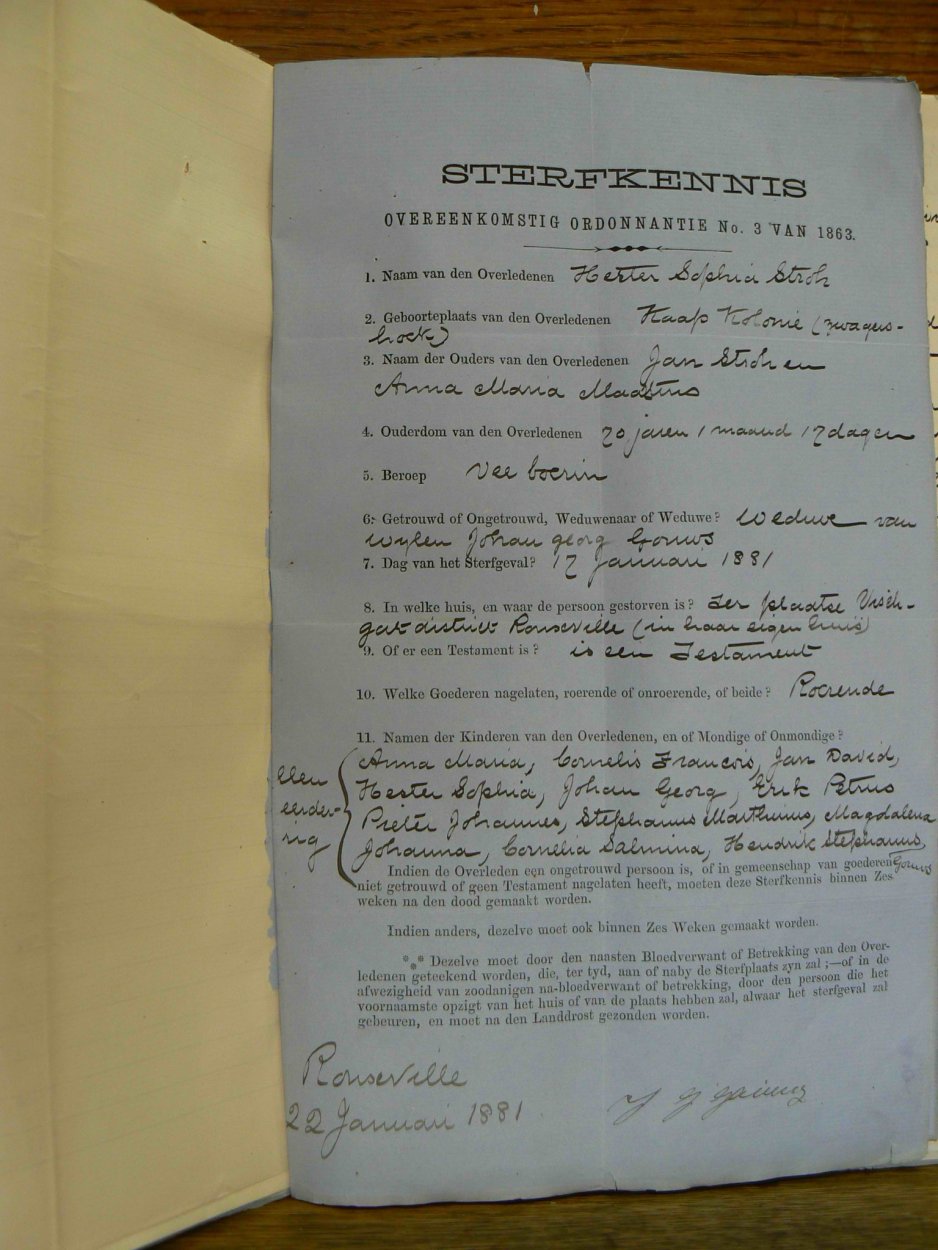 STERFKENNIS
OVEREENKOMSTIG ORDONNANTIE No. 3 VAN 1863.
1. Naam van den Overledenen Hester Sophia Stroh
2. Geboorteplaats van den Overledenen Kaap Kolonie (zwagers-
hoek)
3. Naam der Ouders van den Overledenen Jan Stroh en
Anna Maria
4. Ouderdom van den Overledenen 70 jaren 1 maand 17 dagen
5. Beroep Vee boerin
6. Getrouwd of Ongetrouwd, Weduwenaar of Weduwe? Weduwe van
wylen Johan georg Gouws
7. Dag van het Sterfgeval? 17 Januari 1881
8. In welke huis, en waar de persoon gestorven is? Ter plaatse Visch-
gat district Rouxville (in haar eigen huis)
9. Of er een Testament is? is een Testament
10. Welke Goederen nagelaten, roerende of onroerende, of beide? Roerende
11. Namen der Kinderen van den Overledenen, en of Mondige of Onmondige?
Anna Maria, Cornelis Francois, Jan David,
Hester Sophia, Johan Georg, Erik Petrus
Pieter Johannes, Stephanus Marthinus, Magdalena
Johanna, Cornelia Salmina, Hendrik Stephanus,
Gouws
Indien de Overleden een ongetrouwd persoon is, of in gemeenschap van goederen
niet getrouwd of geen Testament nagelaten heeft, moeten deze Sterfkennis binnen Zes
weken na den dood gemaakt worden.
Indien anders, dezelve moet ook binnen Zes Weken gemaakt worden.
*** Dezelve moet door den naasten Bloedverwant of Betrekking van den Over-
ledenen geteekend worden, die, ter tyd, aan of naby de Sterfplaats zyn zal;—of in de
afwezigheid van zoodanigen na-bloedverwant of betrekking, door den persoon die het
voornaamste opzigt van het huis of van de plaats hebben zal, alwaar het sterfgeval zal
gebeuren, en moet na den Landdrost gezonden worden.
Rouxville
22 Januari 1881